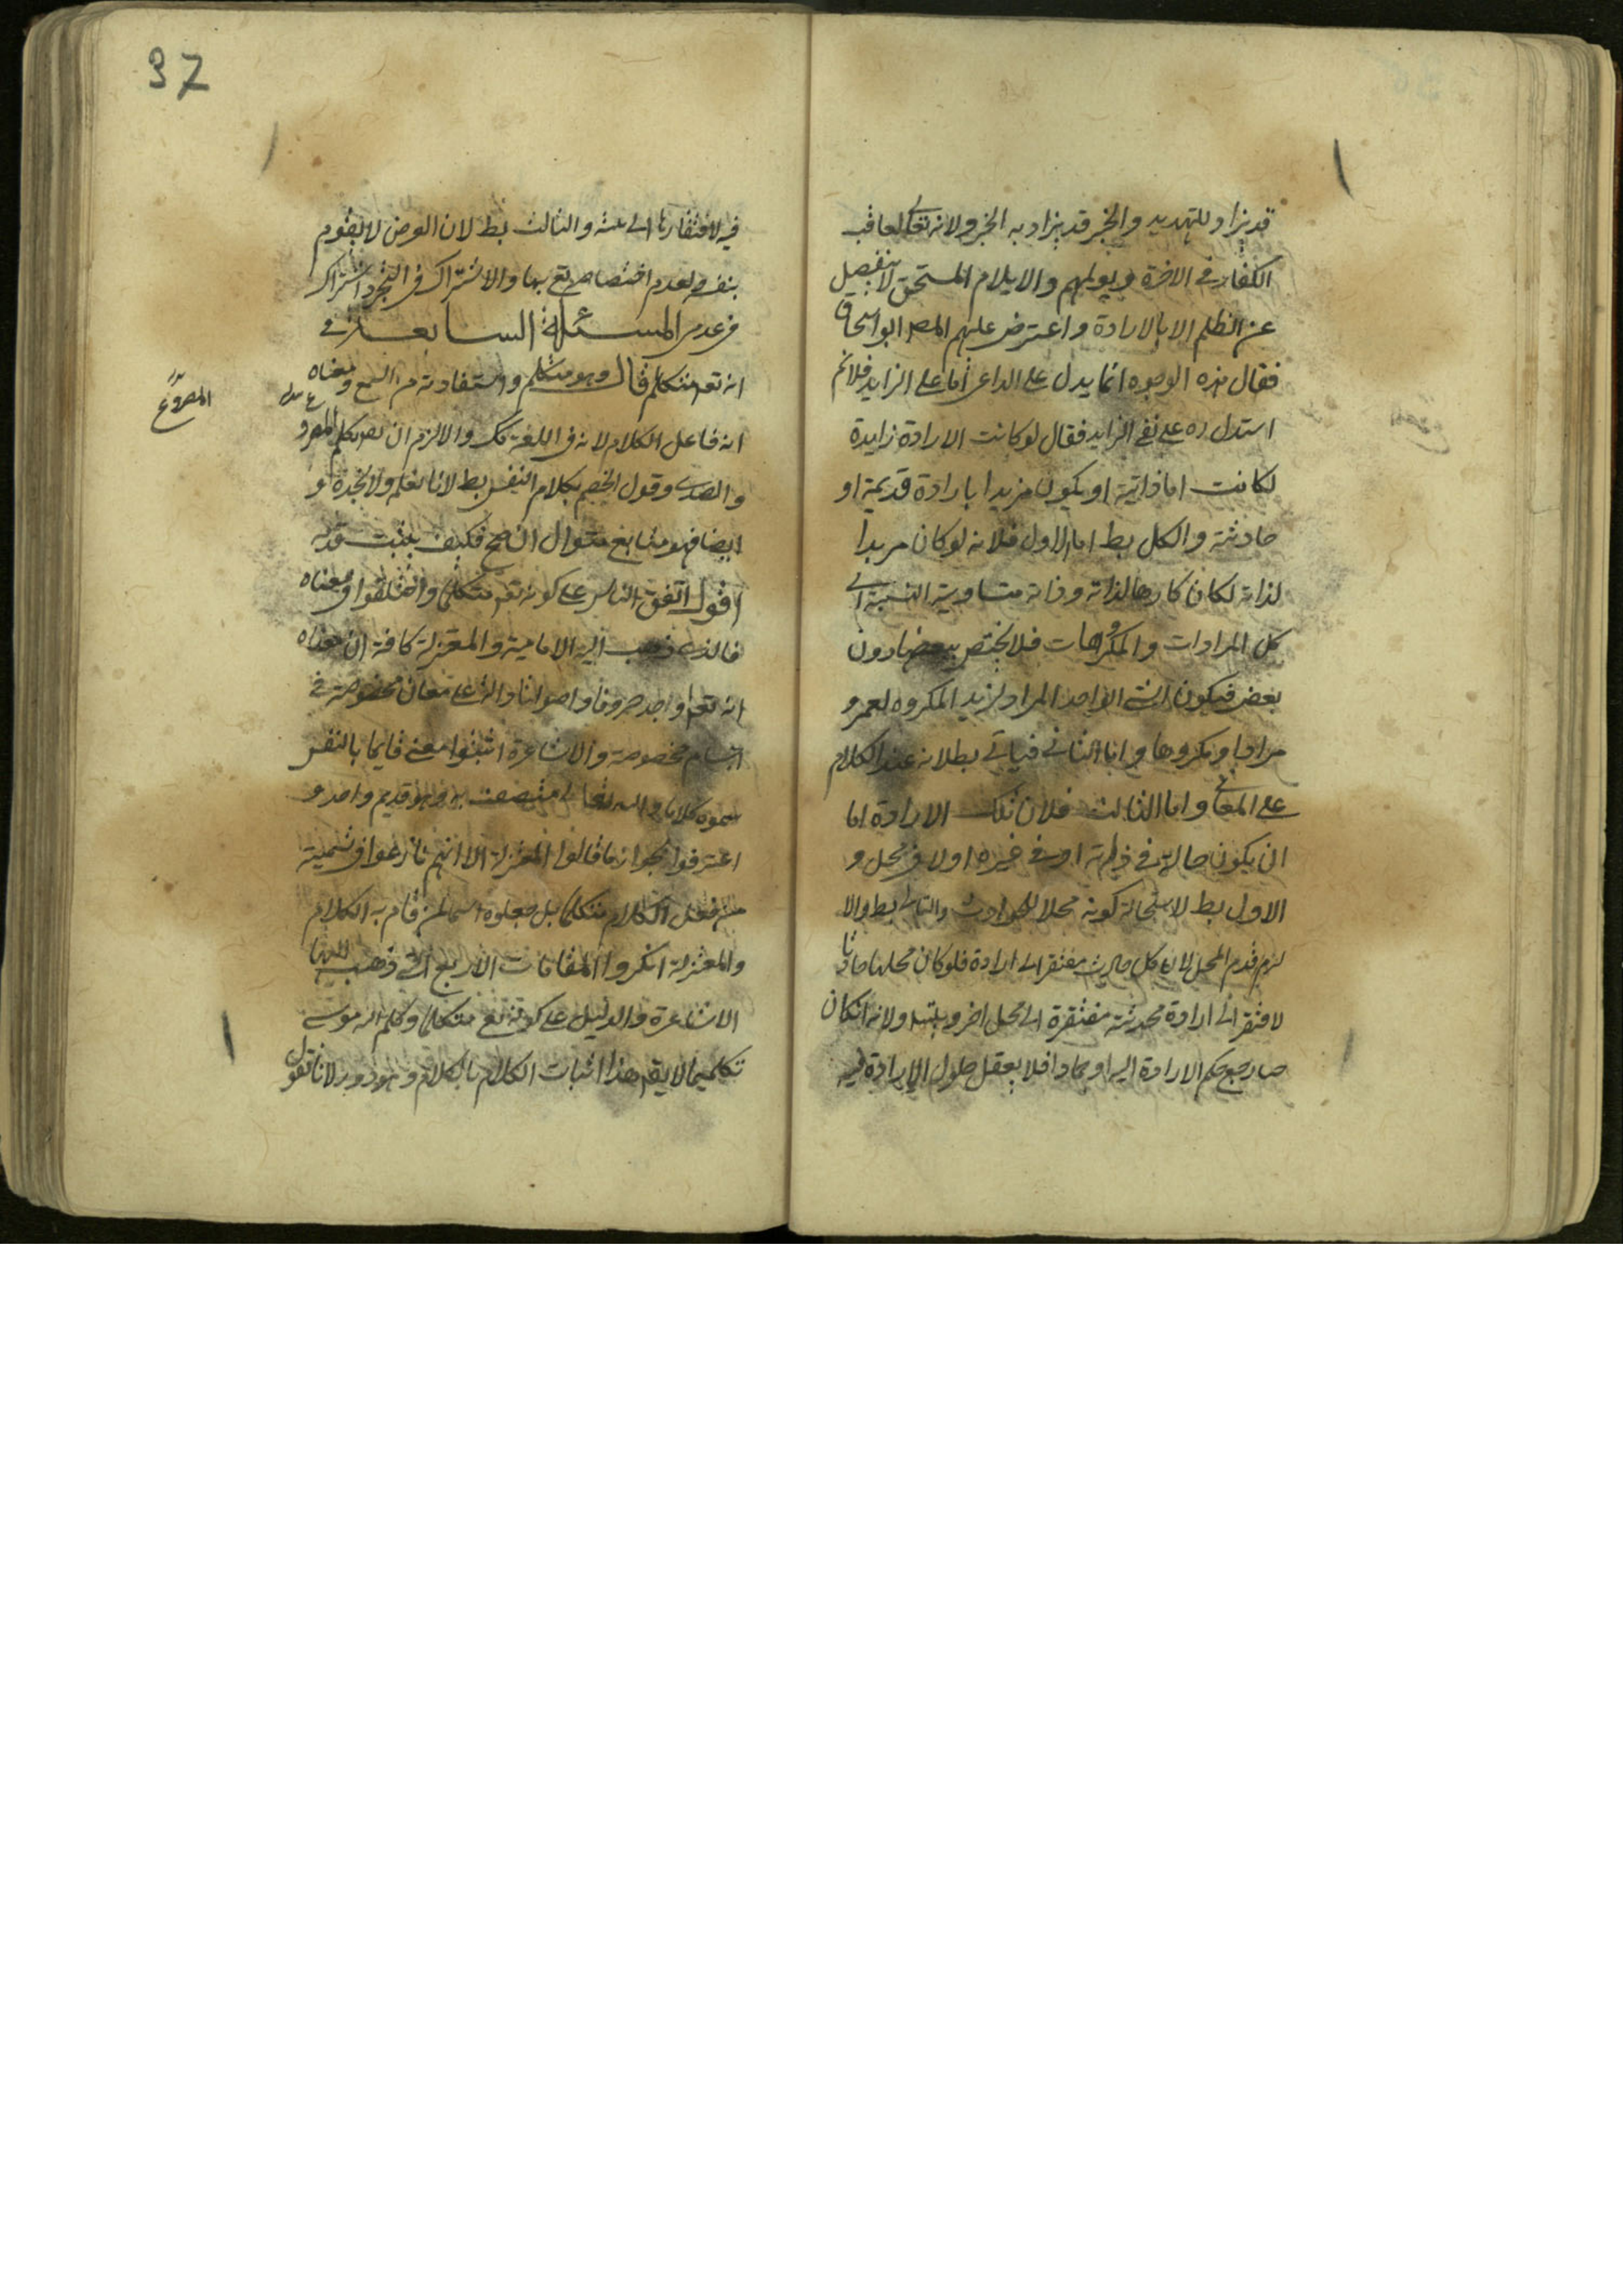 قد يراد للتهديد والخبر قد يراد به الخبر ولانه تعالى يعاقب
الكفار في الاخرة ويولمهم والايلام المستحق لا ينفصل
عن الظلم الا بالارادة واعترض عليهم المص ابو اسحاق
فقال هذه الوجوه انما يدل على الداعي اما على الزايد فلا ثم
استدل ره على نفي الزايد فقال لو كانت الارادة زايدة
لكانت اما ذاتية او يكون مريدا بارادة قديمة او
حادثة والكل بط اما الاول فلانه لو كان مريدا
لذاته لكان كارها لذاته وذاته متساوية النسبة الى
كل المرادات والمكروهات فلا يختص ببعضها دون
بعض فيكون الشي الواحد المراد لزيد المكروه لعمرو
مرادا ومكروها واما الثاني فياتي بطلانه عند الكلام
على المعاني واما الثالث فلان تلك الارادة اما
ان يكون حالة في ذاته او في غيره او لا في محل و
الاول بط لاستحالة كونه محلا للحوادث والثاني بط والا
لزم قدم المحل لان كل حادث مفتقر الى ارادة فلو كان محلها حادثا
لافتقر الى ارادة محدثة مفتقرة الى محل اخر ويتسلسل ولانه ان كان
حيا رجع حكم الارادة اليه او جمادا فلا يعقل حلول الارادة فيه
37
فيه لافتقارها الى بنية والثالث بط لان العرض لا يقوم
بنفسه لعدم اختصاصه تع بها والاشتراك في التجرد اشتراك
في عدمي المسئلة السابعة في
انه تع متكلم قال وهو متكلم واستفادته من السمع ومعناه
انه فاعل الكلام لانه في اللغة كك والا لزم ان يتكلم المصروع
والصدى وقول الخصم بكلام النفس بط لانا نعلم ولا نجده و
ايضا فهو متابع متوال ان صح فكيف يثبت قدمه
اقول اتفق الناس على كونه تع متكلما واختلفوا في معناه
فالذي ذهب اليه الامامية والمعتزلة كافة ان معناه
انه تع اوجد حروفا واصواتا دالة على معان مخصوصة في
اجسام مخصوصة والاشاعرة اثبتوا معنى قايما بالنفس
سموه كلاما والله تعالى متصف به وهو قديم واحد و
اعترفوا بجواز ما قالوا المعتزلة الا انهم نازعوا في تسمية
من فعل الكلام متكلما بل جعلوه اسما لمن قام به الكلام
والمعتزلة انكروا المقامات الاربع التي ذهب اليها
الاشاعرة والدليل على كونه تع متكلما وكلم الله موسى
تكليما لا يقم هذا اثبات الكلام بالكلام وهو دور لانا نقول
المصروع